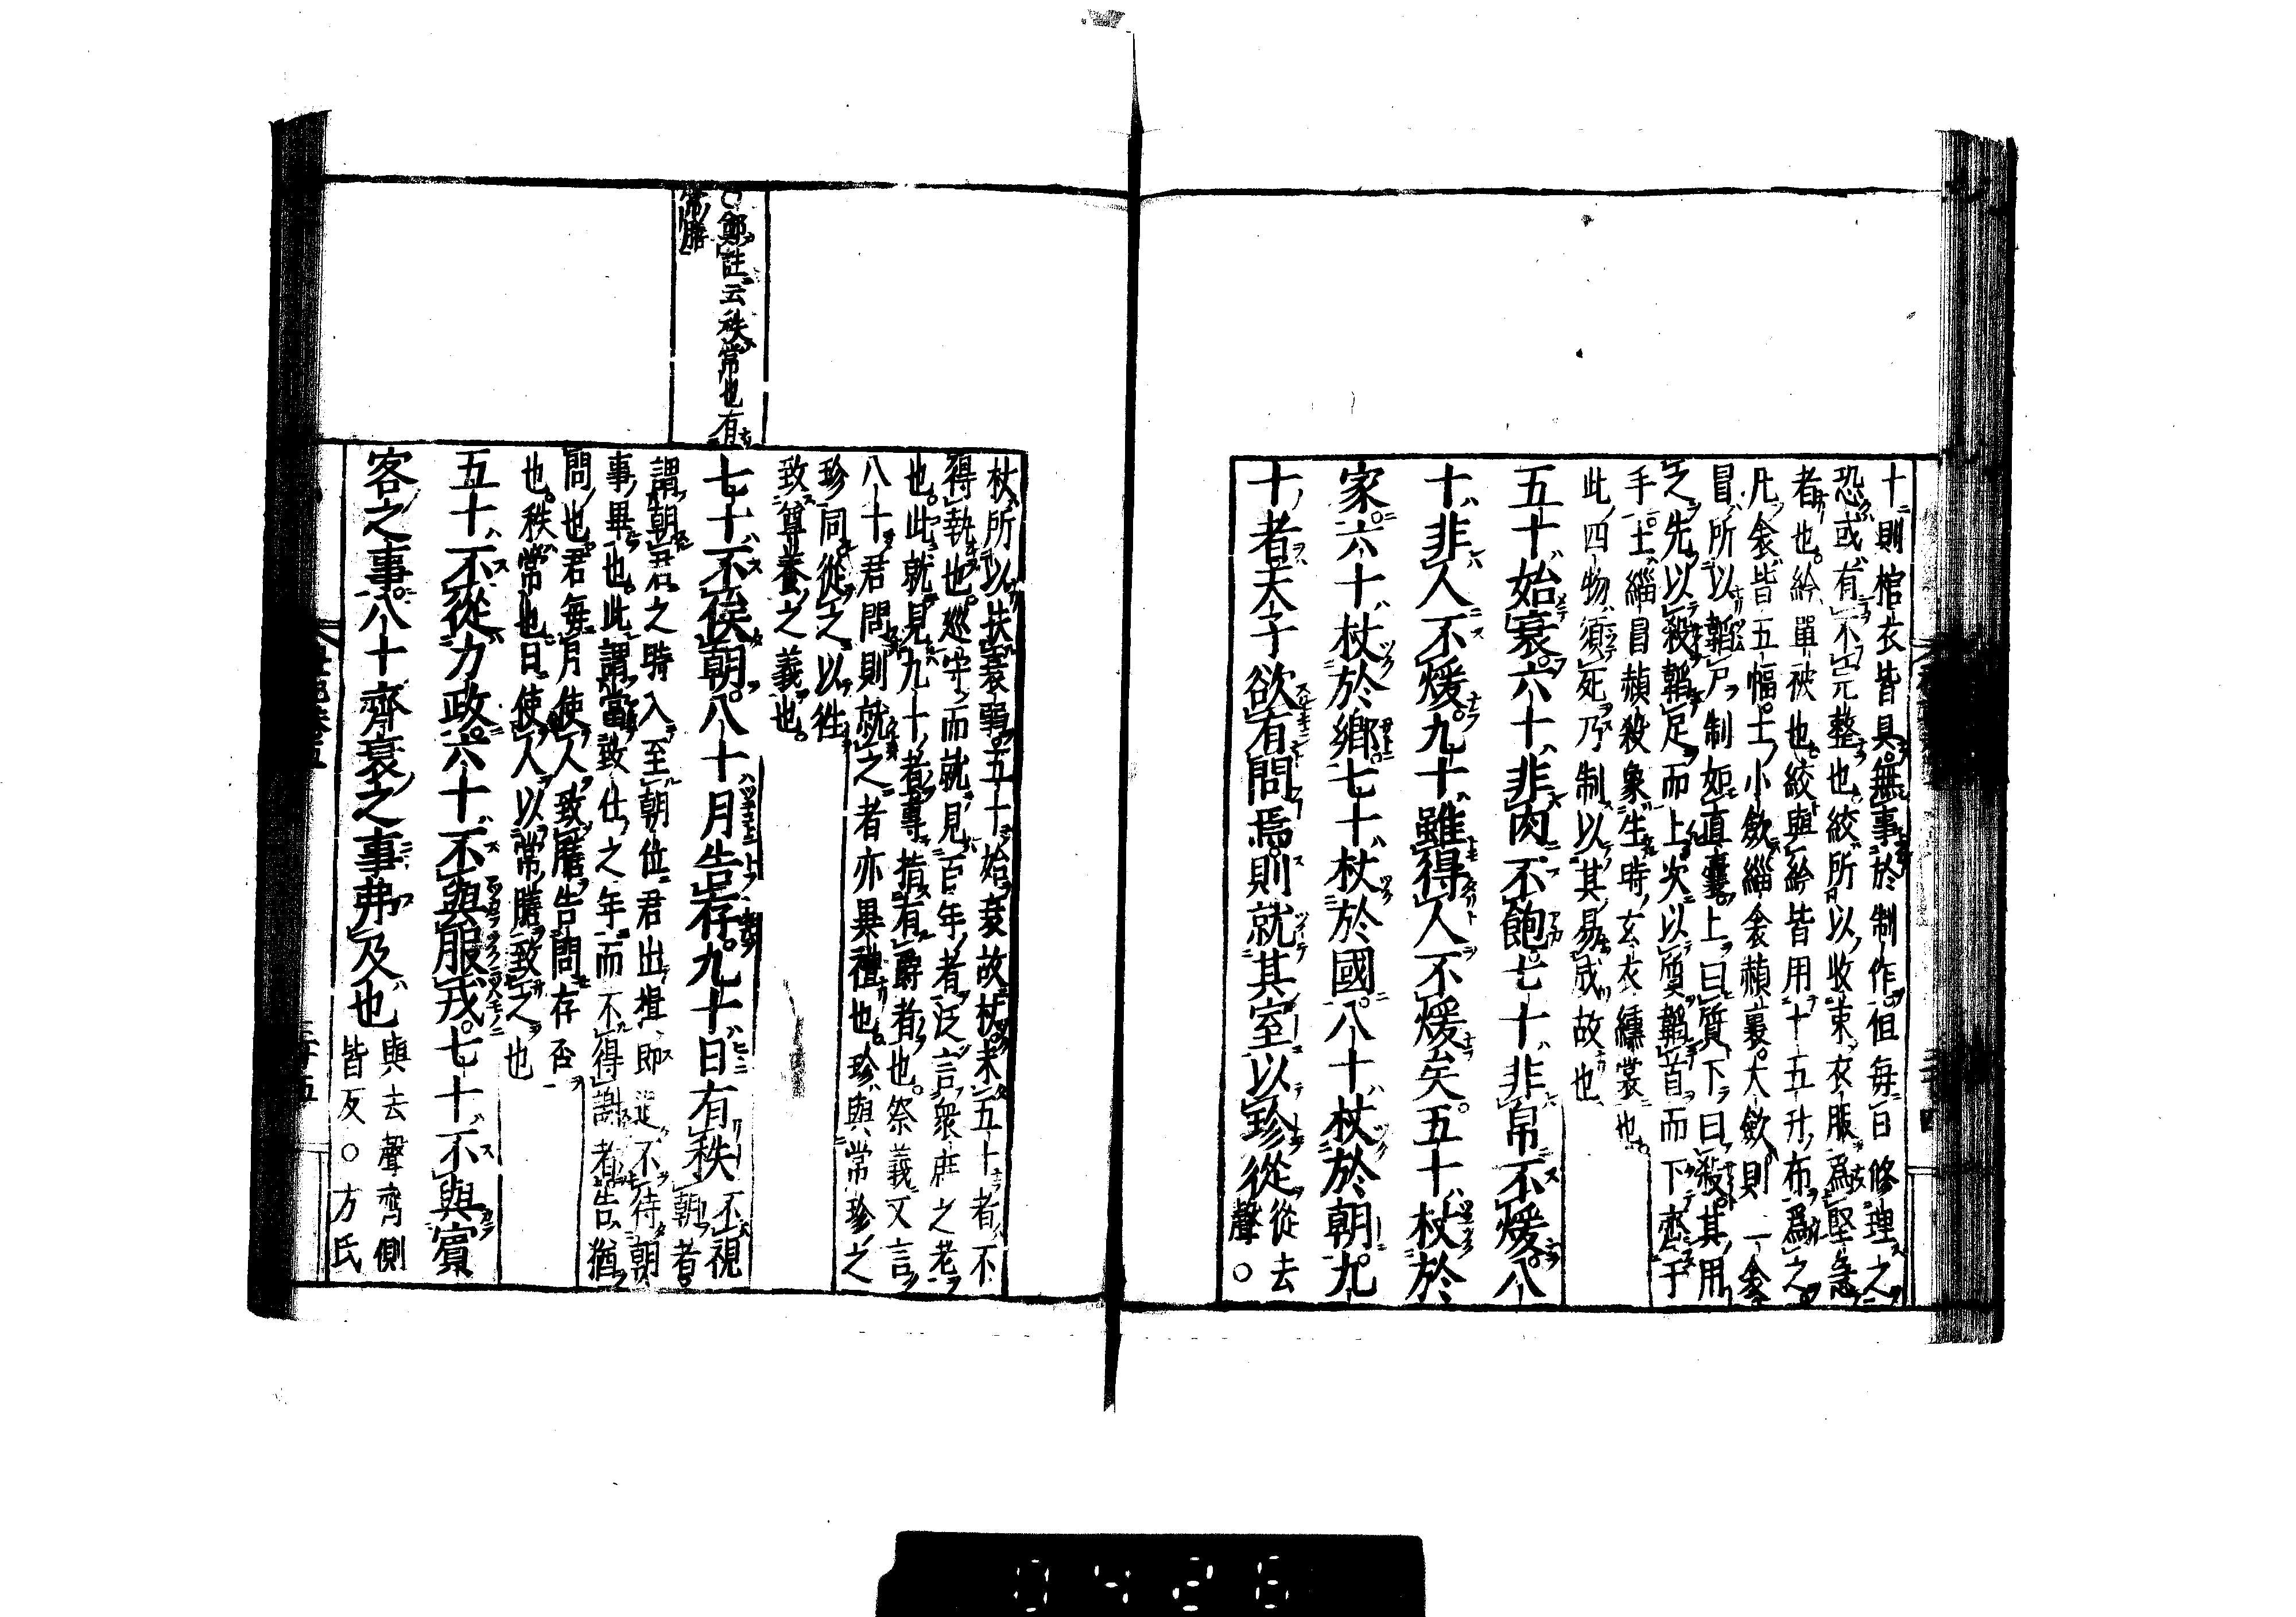 十則棺衣皆具無事於制作但毎日修理之
恐或有不完整也絞所以收束衣服爲堅急
者也紟單被也絞與紟皆用十五升布爲之
凡衾皆五幅士小斂緇衾赬裏大斂則一衾
冒所以韜尸制如直囊上曰質下曰殺其用
之先以殺韜足而上次以質韜首而下齊于
手士緇冒赬殺象生時玄衣纁裳也
此四物須死乃制以其易成故也
五十始衰六十非肉不飽七十非帛不煖八
十非人不煖九十雖得人不煖矣五十杖於
家六十杖於鄉七十杖於國八十杖於朝九
十者天子欲有問焉則就其室以珍從從去
聲○
杖所以扶衰弱五十始衰故杖未五十者不
得執也巡守而就見百年者泛言衆庶之老
也此就見九十者專指有爵者也祭義又言
八十君問則就之者亦異禮也珍與常珍之
珍同從之以徃
致尊養之義也
○鄭註云秩常也有
常膳
七十不俟朝八十月告存九十日有秩不視
朝者
謂朝君之時入至朝位君出揖即退不待朝
事畢也此謂當致仕之年而不得謝者告猶
問也君毎月使人致膳告問存否
也秩常也日使人以常膳致之也
五十不從力政六十不與服戎七十不與賓
客之事八十齊衰之事弗及也與去聲齊側
皆反○方氏